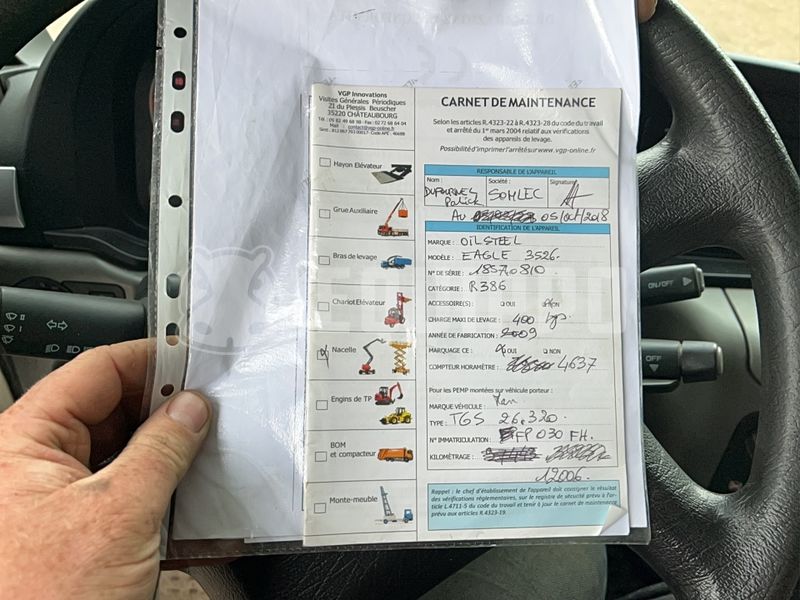 VGP Innovations
Visites Générales Périodiques
21 du Plessis Beuscher
35220 CHÂTEAUBOURG
Tél. : 09 82 49 68 98 - Fax : 02 72 68 64 04
Mail : contact@vgp-online.fr
Hayon Elévateur
Grue Auxiliaire
Bras de levage
Chariot Elévateur
Nacelle
Engins de TP
BOM
et compacteur
Monte-meuble
CARNET DE MAINTENANCE
Selon les articles R.4323-22 à R.4323-28 du code du travail
et arrêté du 1er mars 2004 relatif aux vérifications
des appareils de levage.
Possibilité d'imprimer l'arrêté sur www.vgp-online.fr
RESPONSABLE DE L'APPAREIL
Nom : Société : Signature
SOMLEC
Au 05/oct/2018
IDENTIFICATION DE L'APPAREIL
MARQUE : OILSTEEL
MODÈLE : EAGLE 3526.
N° DE SÉRIE : 18570810
CATÉGORIE : R386
ACCESSOIRE(S) : OUI NON
CHARGE MAXI DE LEVAGE : 400 kgs.
ANNÉE DE FABRICATION : 2009
MARQUAGE CE : OUI NON
COMPTEUR HORAMÈTRE : 4637
Pour les PEMP montées sur véhicule porteur :
MARQUE VÉHICULE : Man
TYPE : TGS 26.320.
N° IMMATRICULATION : FP 030 FH.
KILOMÉTRAGE :
12006.
Rappel : le chef d'établissement doit consigner le résultat
des vérifications réglementaires, sur le registre de sécurité prévu à l'ar-
ticle L.4711-5 du code du travail et tenir à jour le carnet de maintenance
prévu aux articles R.4323-19.
ON/OFF
OFF